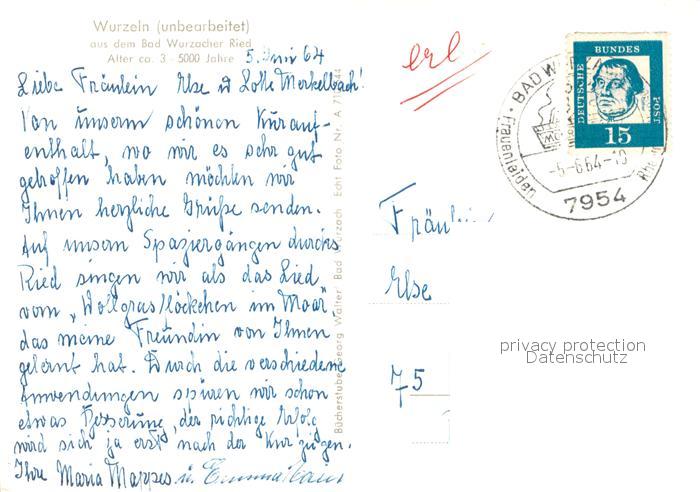 Wurzeln (unbearbeitet)
aus dem Bad Wurzacher Ried
Alter ca. 3 - 5000 Jahre
5. Juni 64
Liebe Fräulein Else u Lotte Merkelbach!
Von unserm schönen Kurauf-
enthalt, wo wir es sehr gut
getroffen haben möchten wir
Ihnen herzliche Grüße senden.
Auf unsern Spaziergängen durchs
Ried singen wir als das Lied
vom "Wollgrasflöckchen im Moor"
das meine Freundin von Ihnen
gelernt hat. Durch die verschiedene
Anwendungen spüren wir schon
etwas Besserung, der richtige Erfolg
wird sich ja erst nach der Kur zeigen.
Ihre Maria Mappes u. Emma
Bücherstube Georg Walter Bad Wurzach Echt Foto Nr. A
erl
DEUTSCHE BUNDESPOST
15
BAD WURZ
Frauenleiden
Rhe
-5.-6.64-10
7954
Fräulein
Else
75
privacy protection
Datenschutz